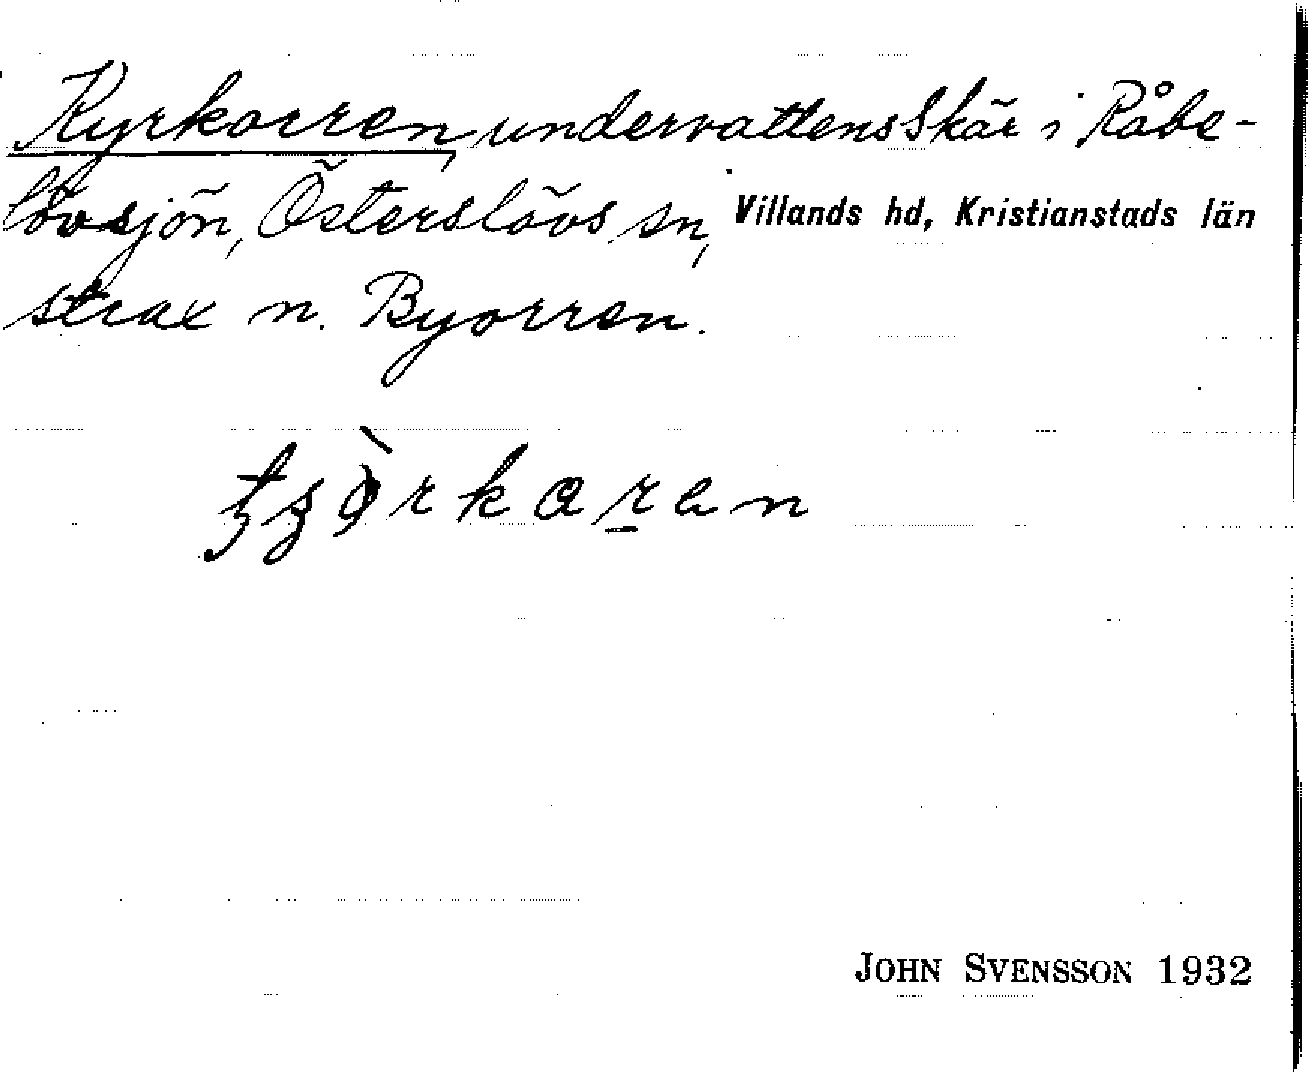 Kyrkorren, undervattensskär i Råbe-
lövsjön, Österslövs sn, Villands hd, Kristianstads län
strax n. Byorren.
JOHN SVENSSON 1932